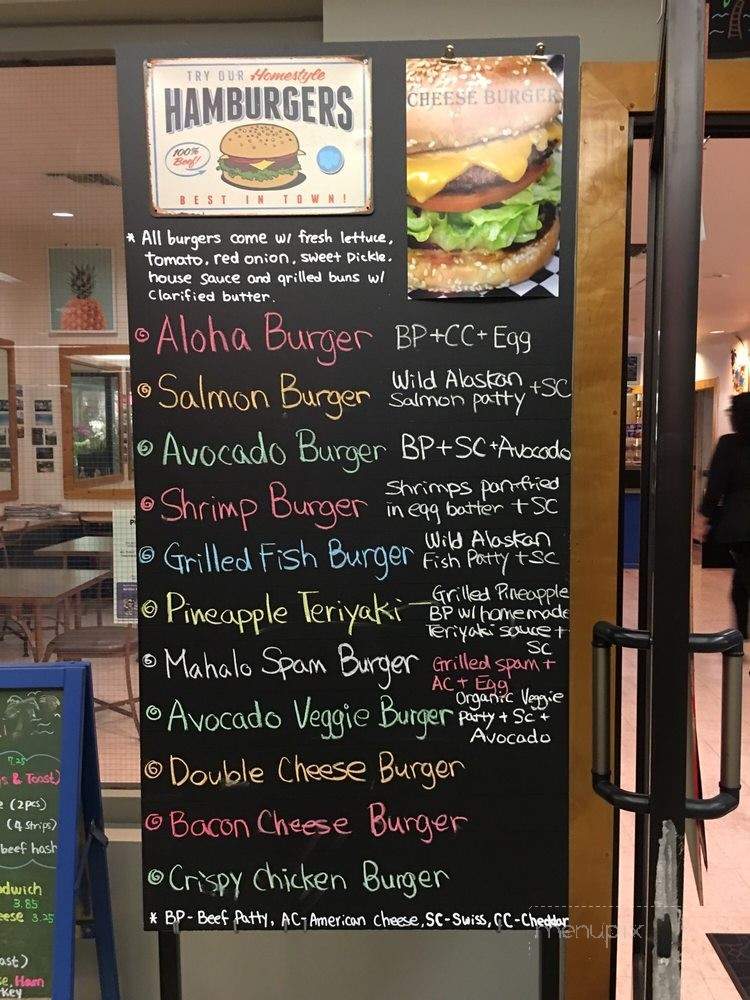 TRY OUR Homestyle
HAMBURGERS
100%
Beef!
BEST IN TOWN!
CHEESE BURGER
* All burgers come w/ fresh lettuce,
tomato, red onion, sweet pickle.
house sauce and grilled buns w/
clarified butter.
Aloha Burger BP+CC+Egg
Salmon Burger Wild Alaskan
Salmon patty +SC
Avocado Burger BP+SC+Avocado
Shrimp Burger Shrimps pan-fried
in egg batter +SC
Grilled Fish Burger Wild Alaskan
Fish Patty +SC
Pineapple Teriyaki — Grilled Pineapple
BP w/ homemade
Teriyaki sauce +
SC
Mahalo Spam Burger Grilled spam +
AC + Egg
Avocado Veggie Burger Organic Veggie
Party + Sc +
Avocado
Double Cheese Burger
Bacon Cheese Burger
Crispy Chicken Burger
* BP-Beef Patty, AC-American cheese, SC-Swiss, CC-Cheddar
menupix
7.25
& Toast)
(2pcs)
(4 strips)
beef hash
3.85
3.25
Ham